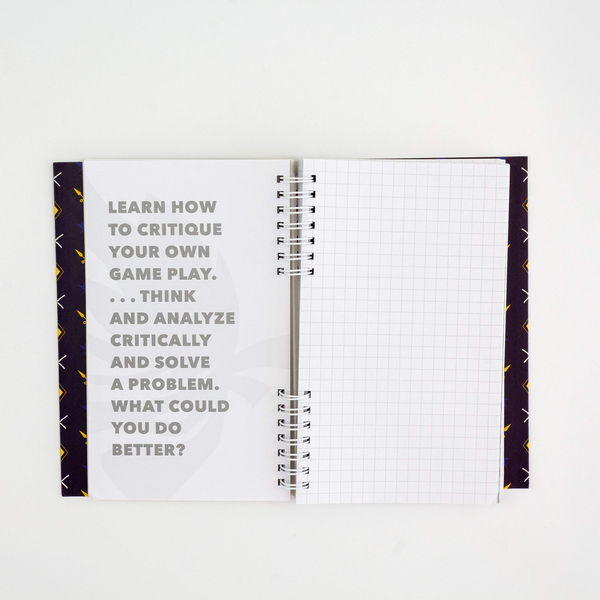 LEARN HOW
TO CRITIQUE
YOUR OWN
GAME PLAY.
. . . THINK
AND ANALYZE
CRITICALLY
AND SOLVE
A PROBLEM.
WHAT COULD
YOU DO
BETTER?